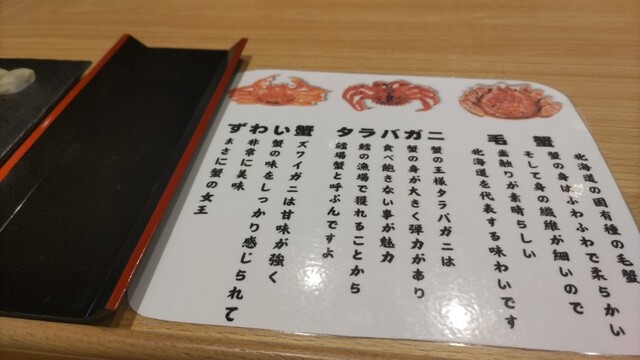 毛蟹
北海道の固有種の毛蟹
蟹の身はふわふわで柔らかい
そして身の繊維が細いので
歯触りが素晴らしい
北海道を代表する味わいです
タラバガニ
蟹の王様タラバガニは
蟹の身が大きく弾力があり
食べ飽きない事が魅力
鱈の漁場で獲れることから
鱈場蟹と呼ぶんですよ
ずわい蟹
ズワイガニは甘味が強く
蟹の味をしっかり感じられて
非常に美味
まさに蟹の女王